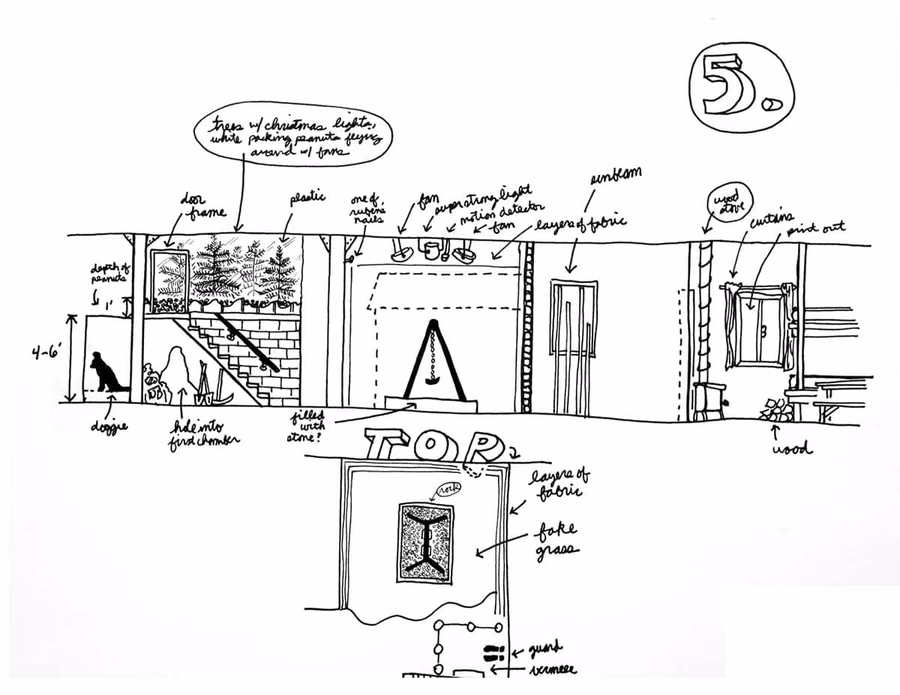 5.
trees w/ christmas lights,
white packing peanuts flying
around w/ fans
door
frame
plastic
one of
rubens
nails
fan
super strong light
motion detector
fan
layers of fabric
sunbeam
wood
stove
curtains
print out
depth of
peanuts
1'
4-6'
doggie
hole into
first chamber
filled
with
stone?
wood
TOP
rock
layers of
fabric
fake
grass
guard
vermeer